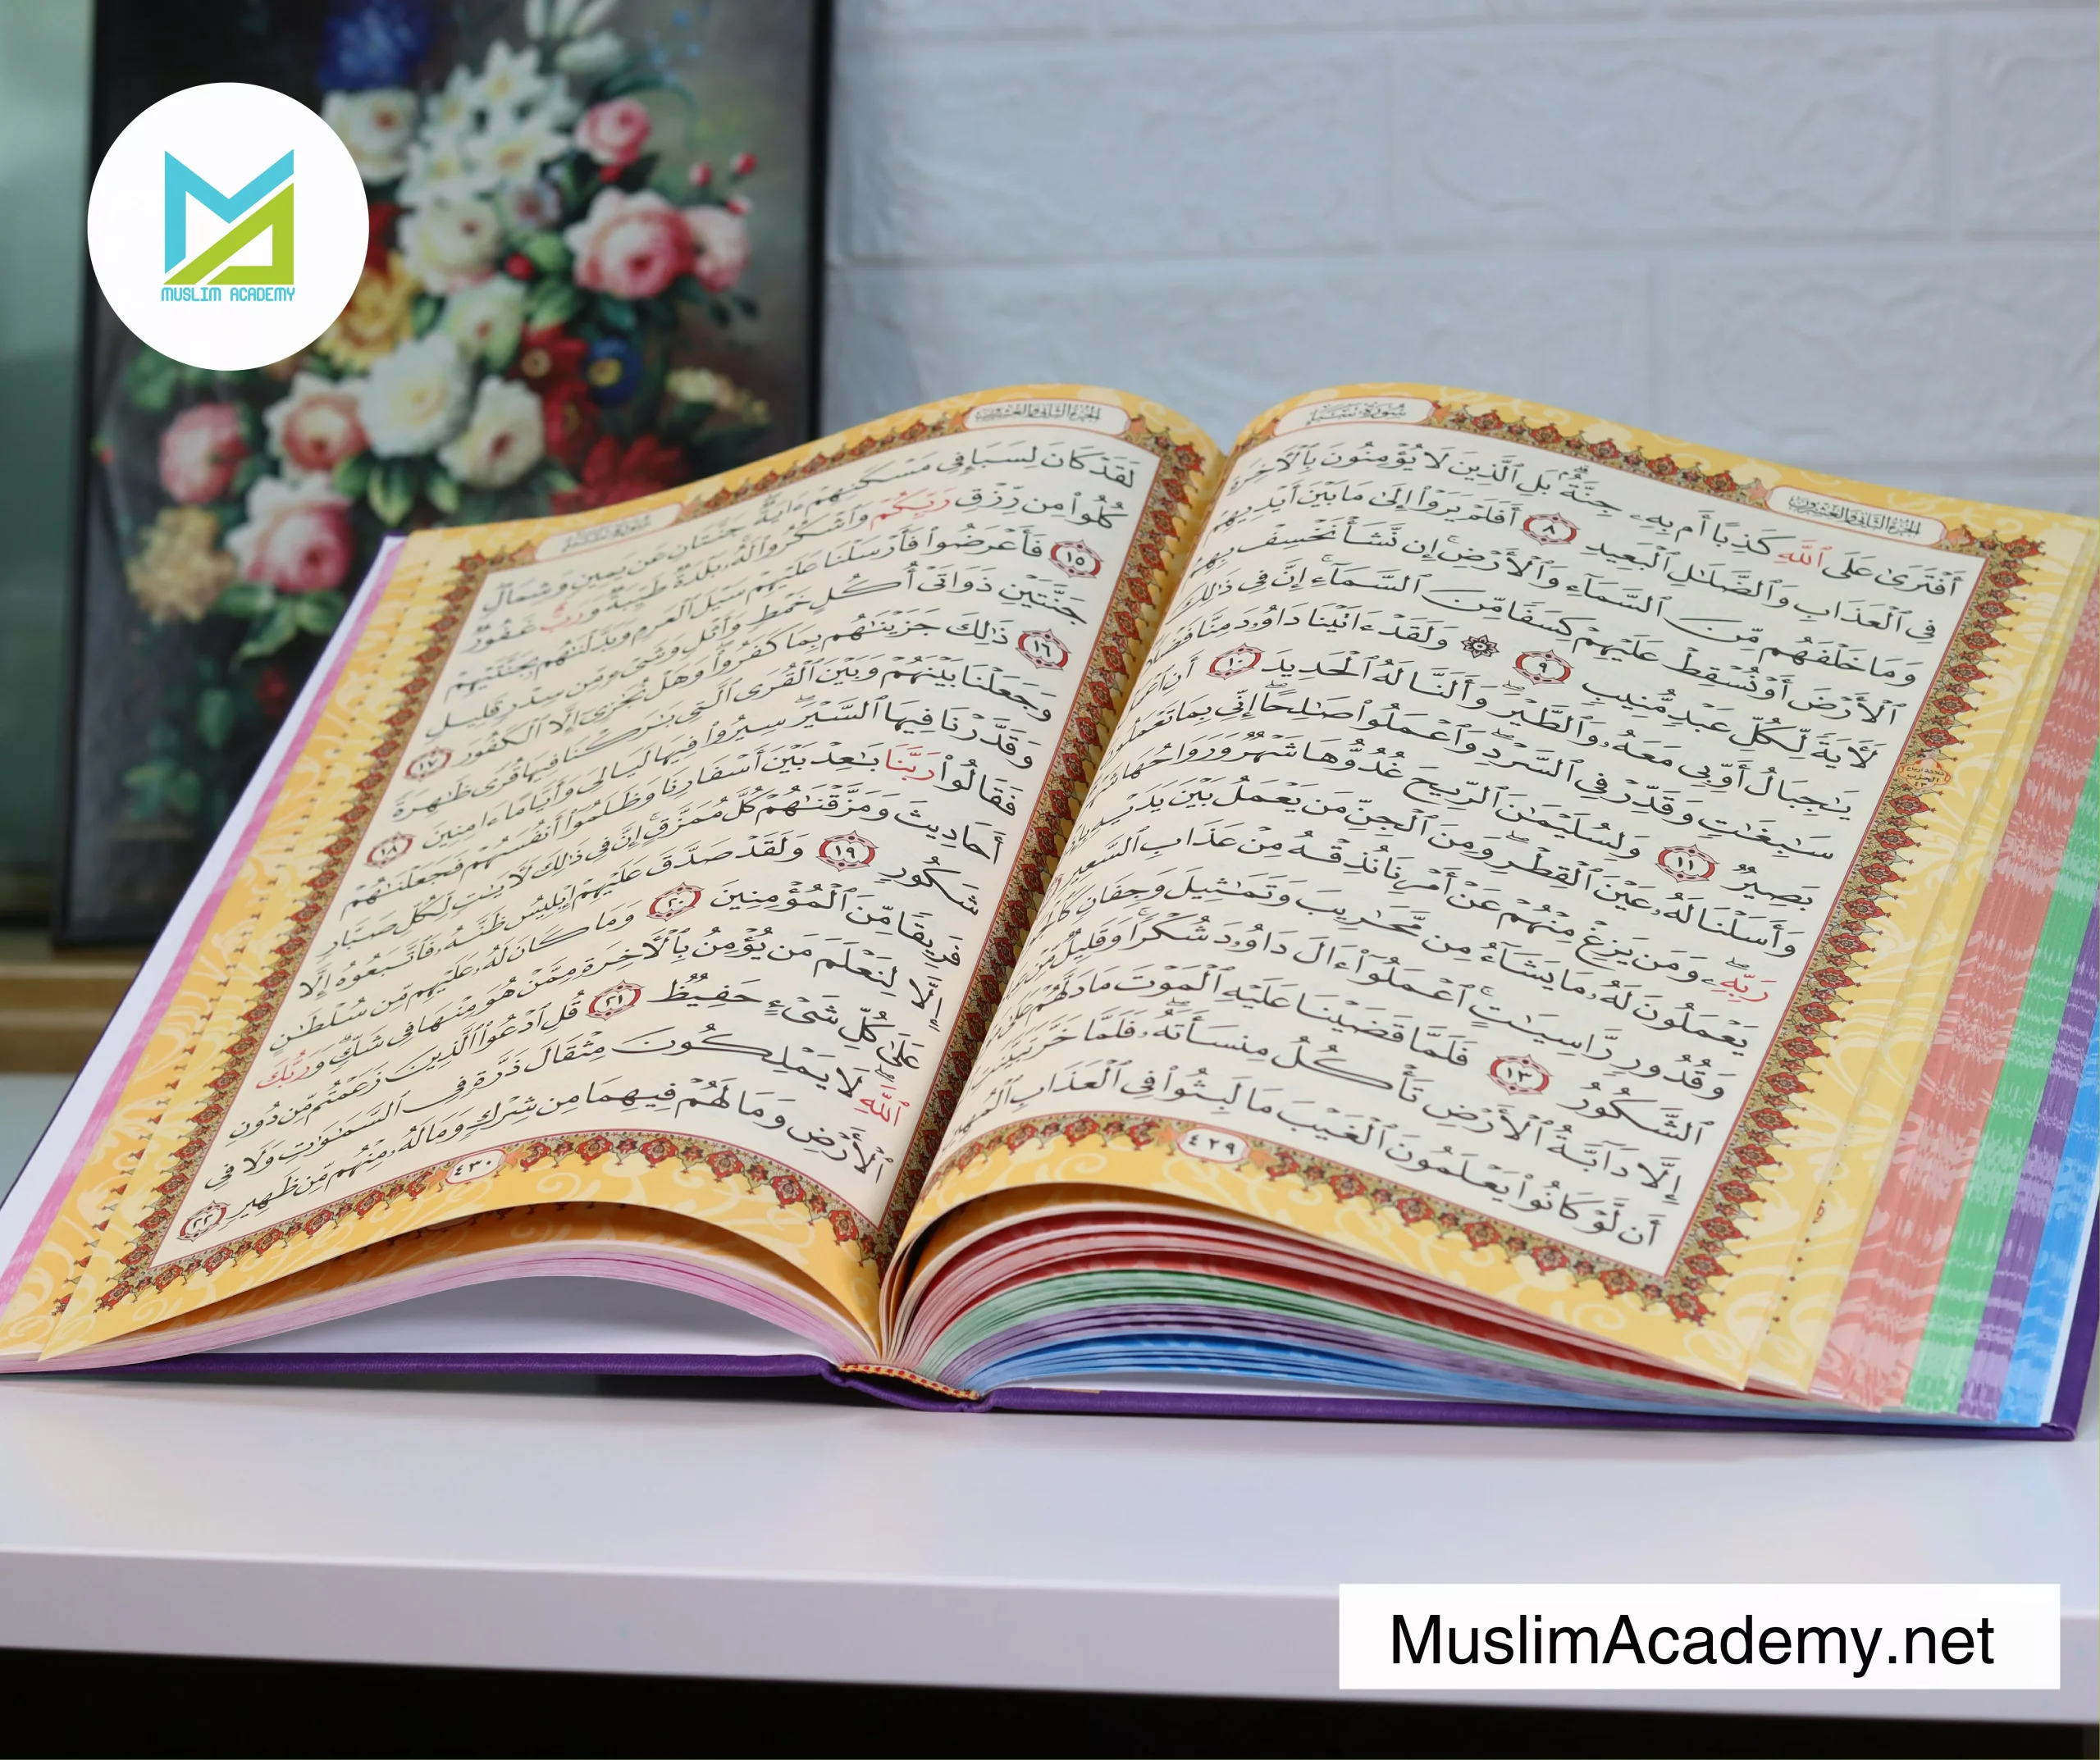 MUSLIM ACADEMY
سُورَةُ سَبَإٍ
الجُزءُ الثَّانِي وَالعِشْرُونَ
أَفْتَرَىٰ عَلَى ٱللَّهِ كَذِبًا أَم بِهِۦ جِنَّةٌۢ ۗ بَلِ ٱلَّذِينَ لَا يُؤْمِنُونَ بِٱلْءَاخِرَةِ
فِى ٱلْعَذَابِ وَٱلضَّلَٰلِ ٱلْبَعِيدِ ٨ أَفَلَمْ يَرَوْا۟ إِلَىٰ مَا بَيْنَ أَيْدِيهِمْ
وَمَا خَلْفَهُم مِّنَ ٱلسَّمَآءِ وَٱلْأَرْضِ ۚ إِن نَّشَأْ نَخْسِفْ بِهِمُ
ٱلْأَرْضَ أَوْ نُسْقِطْ عَلَيْهِمْ كِسَفًا مِّنَ ٱلسَّمَآءِ ۚ إِنَّ فِى ذَٰلِكَ
لَءَايَةً لِّكُلِّ عَبْدٍ مُّنِيبٍ ٩ ۞ وَلَقَدْ ءَاتَيْنَا دَاوُۥدَ مِنَّا فَضْلًا
يَٰجِبَالُ أَوِّبِى مَعَهُۥ وَٱلطَّيْرَ ۖ وَأَلَنَّا لَهُ ٱلْحَدِيدَ ١٠ أَنِ ٱعْمَلْ
سَٰبِغَٰتٍ وَقَدِّرْ فِى ٱلسَّرْدِ ۖ وَٱعْمَلُوا۟ صَٰلِحًا ۖ إِنِّى بِمَا تَعْمَلُونَ
بَصِيرٌ ١١ وَلِسُلَيْمَٰنَ ٱلرِّيحَ غُدُوُّهَا شَهْرٌ وَرَوَاحُهَا شَهْرٌ
وَأَسَلْنَا لَهُۥ عَيْنَ ٱلْقِطْرِ ۖ وَمِنَ ٱلْجِنِّ مَن يَعْمَلُ بَيْنَ يَدَيْهِ بِإِذْنِ
رَبِّهِۦ ۖ وَمَن يَزِغْ مِنْهُمْ عَنْ أَمْرِنَا نُذِقْهُ مِنْ عَذَابِ ٱلسَّعِيرِ
يَعْمَلُونَ لَهُۥ مَا يَشَآءُ مِن مَّحَٰرِيبَ وَتَمَٰثِيلَ وَجِفَانٍ
وَقُدُورٍ رَّاسِيَٰتٍ ۚ ٱعْمَلُوٓا۟ ءَالَ دَاوُۥدَ شُكْرًا ۚ وَقَلِيلٌ مِّنْ
ٱلشَّكُورُ ١٣ فَلَمَّا قَضَيْنَا عَلَيْهِ ٱلْمَوْتَ مَا دَلَّهُمْ عَلَىٰ
إِلَّا دَآبَّةُ ٱلْأَرْضِ تَأْكُلُ مِنسَأَتَهُۥ ۖ فَلَمَّا خَرَّ تَبَيَّنَتِ
أَن لَّوْ كَانُوا۟ يَعْلَمُونَ ٱلْغَيْبَ مَا لَبِثُوا۟ فِى ٱلْعَذَابِ ٱلْمُهِينِ
٤٢٩
الجُزءُ الثَّانِي وَالعِشْرُونَ
سُورَةُ سَبَإٍ
لَقَدْ كَانَ لِسَبَإٍ فِى مَسْكَنِهِمْ ءَايَةٌ ۖ جَنَّتَانِ عَن يَمِينٍ وَشِمَالٍ ۖ
كُلُوا۟ مِن رِّزْقِ رَبِّكُمْ وَٱشْكُرُوا۟ لَهُۥ ۚ بَلْدَةٌ طَيِّبَةٌ وَرَبٌّ غَفُورٌ
١٥ فَأَعْرَضُوا۟ فَأَرْسَلْنَا عَلَيْهِمْ سَيْلَ ٱلْعَرِمِ وَبَدَّلْنَٰهُم بِجَنَّتَيْهِمْ
جَنَّتَيْنِ ذَوَاتَىْ أُكُلٍ خَمْطٍ وَأَثْلٍ وَشَىْءٍ مِّن سِدْرٍ قَلِيلٍ
١٦ ذَٰلِكَ جَزَيْنَٰهُم بِمَا كَفَرُوا۟ ۖ وَهَلْ نُجَٰزِىٓ إِلَّا ٱلْكَفُورَ ١٧
وَجَعَلْنَا بَيْنَهُمْ وَبَيْنَ ٱلْقُرَى ٱلَّتِى بَٰرَكْنَا فِيهَا قُرًى ظَٰهِرَةً
وَقَدَّرْنَا فِيهَا ٱلسَّيْرَ ۖ سِيرُوا۟ فِيهَا لَيَالِىَ وَأَيَّامًا ءَامِنِينَ ١٨
فَقَالُوا۟ رَبَّنَا بَٰعِدْ بَيْنَ أَسْفَارِنَا وَظَلَمُوٓا۟ أَنفُسَهُمْ فَجَعَلْنَٰهُمْ
أَحَادِيثَ وَمَزَّقْنَٰهُمْ كُلَّ مُمَزَّقٍ ۚ إِنَّ فِى ذَٰلِكَ لَءَايَٰتٍ لِّكُلِّ صَبَّارٍ
شَكُورٍ ١٩ وَلَقَدْ صَدَّقَ عَلَيْهِمْ إِبْلِيسُ ظَنَّهُۥ فَٱتَّبَعُوهُ إِلَّا
فَرِيقًا مِّنَ ٱلْمُؤْمِنِينَ ٢٠ وَمَا كَانَ لَهُۥ عَلَيْهِم مِّن سُلْطَٰنٍ
إِلَّا لِنَعْلَمَ مَن يُؤْمِنُ بِٱلْءَاخِرَةِ مِمَّنْ هُوَ مِنْهَا فِى شَكٍّ ۗ وَرَبُّكَ
عَلَىٰ كُلِّ شَىْءٍ حَفِيظٌ ٢١ قُلِ ٱدْعُوا۟ ٱلَّذِينَ زَعَمْتُم مِّن دُونِ
ٱللَّهِ ۖ لَا يَمْلِكُونَ مِثْقَالَ ذَرَّةٍ فِى ٱلسَّمَٰوَٰتِ وَلَا فِى
ٱلْأَرْضِ وَمَا لَهُمْ فِيهِمَا مِن شِرْكٍ وَمَا لَهُۥ مِنْهُم مِّن ظَهِيرٍ ٢٢
٤٣٠
MuslimAcademy.net